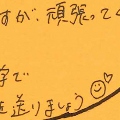 すが、頑張って
で
を送りましょう